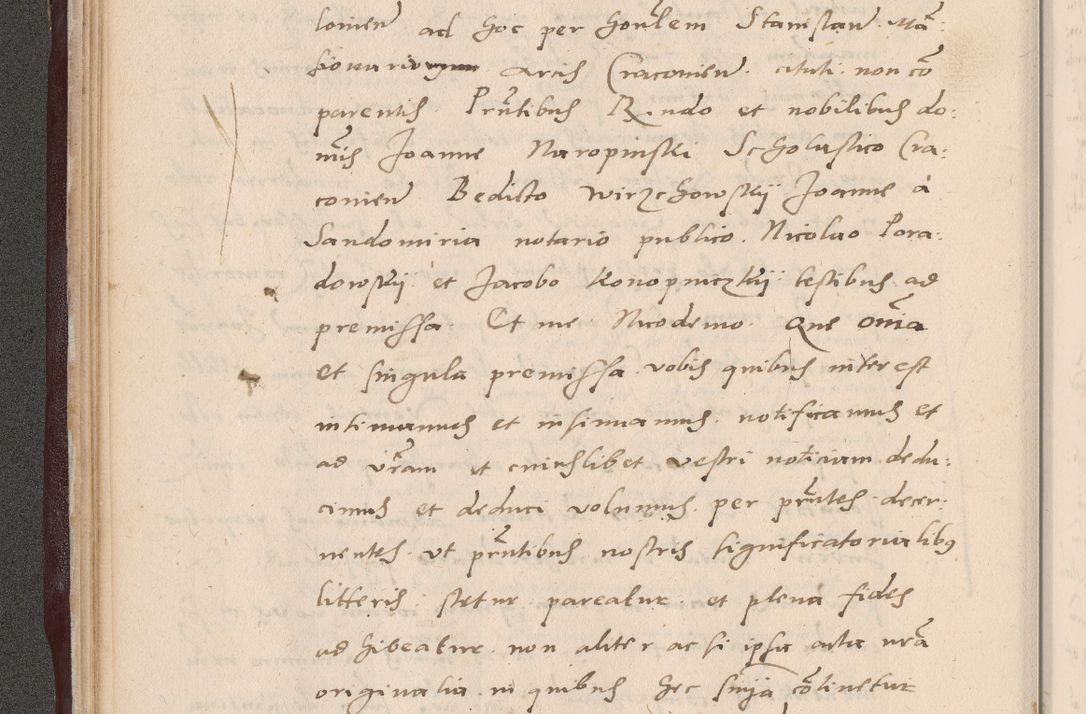 lonien̄ ad hoc per honr̄lem Stanislaū Mā:
sionariū arcis Cracovien̄. citati non cō
parentis Prn̄tibus Rn̄do et nobilibus do:
mīs Joanne Naropinski Scholastico Cra:
covien̄ Bedicto Wirzchowskÿ Joanne à
Sandomiria notario publico. Nicolao Pora:
dowskÿ et Jacobo Konopniczkÿ testibus ad
premissa. Et me Nicodemo. Que om̄ia
et singula premissa vobis quibus interest
intimamus et insinuamus. notificamus et
ad vr̄am et cuiuslibet vestri noticiam dedu:
cimus et deduci volumus per prn̄tes decer:
nentes. ut prn̄tibus nostris significatorialibꝫ
litteris stetur pareatur. et plena fides
adhibeatur non aliter ac si ipsa acta nrā
originalia in quibus hec sinḡa cōtinetur